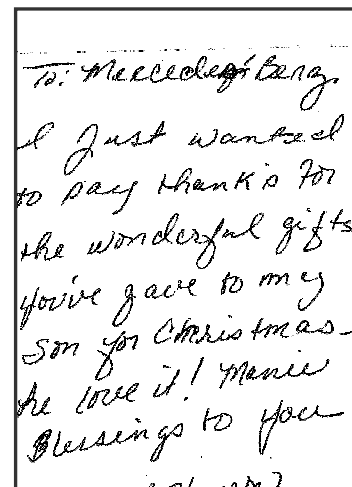 To: Mercedes Benz,
I Just wanted
to say thank's for
the wonderful gifts
you've gave to my
son for Christmas-
he love it! Manie
Blessings to you